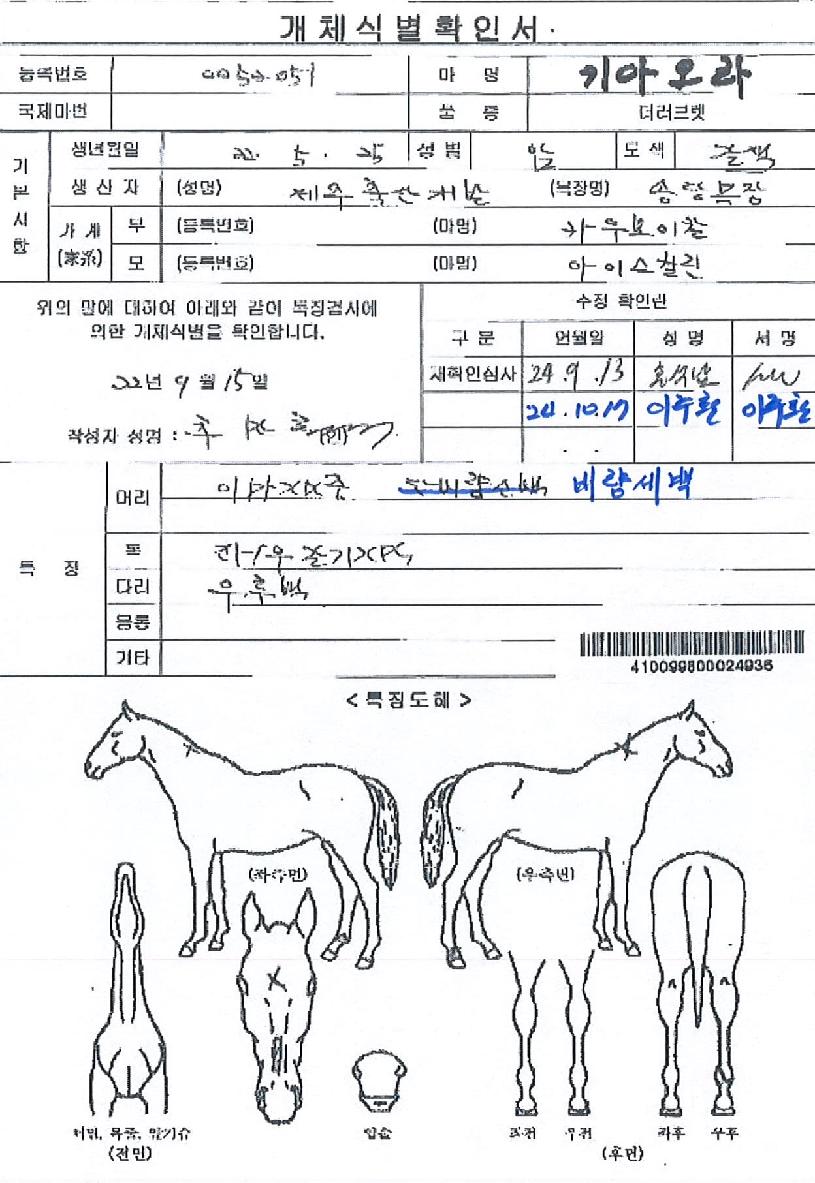 개체식별확인서
등록번호 0052051 마 명 기아오라
국제마번 품 종 더러브렛
기본사항
생년월일 22. 5. 25 성별 암 모색 갈색
생산자 (성명) 제주축산개발 (목장명) 송당목장
가계(家系) 부 (등록번호) (마명) 카우보이칼
모 (등록번호) (마명) 아이스칼린
위의 말에 대하여 아래와 같이 특징검사에
의한 개체식별을 확인합니다.
22년 9월 15일
작성자 성명 :
수정 확인란
구분 년월일 성명 서명
재확인심사 24. 9. 13
24.10.17 이주환 이주환
특 징
머리 비량세백
몸
다리 우후백
몽통
기타
410099800024936
<특징도해>
(좌측면) (우측면)
입술 좌전 우전 좌후 우후
(전면) (후면)